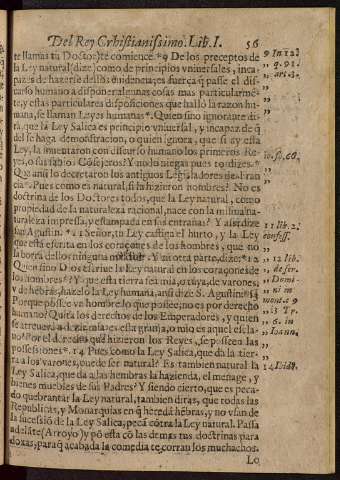 Del Rey Crhistianissimo. Lib. I. 56
te llamas tu Doctor) te comience. * 9 De los preceptos de
la Ley natural (dize) como de principios vniuersales, inca-
pazes de hazerse dellos euidencia; es fuerça q̃ passe el dis-
curso humano a disponer algunas cosas mas particularmẽ-
te, y estas particulares disposiciones que hallò la razon hu-
mana, se llaman Leyes humanas*. Quien sino ignorante di-
rà, que la Ley Salica es principio vniuersal, y incapaz de q̃
del se haga demonstracion, o quien ignora, que si ay essa
Ley, la inuentaron con discurso humano los primeros Re-
yes, o sus sabios Cõsejeros? Y no lo niegas pues tu dizes*
Que ansi lo decretaron los antiguos Legisladores de Fran
cia*. Pues como es natural, si la hizieron hombres? No es
doctrina de los Doctores todos, que la Ley natural, como
propiedad de la naturaleza racional, nace con la misma na-
turaleza impressa, y estampada en sus entrañas? Y assi dize
san Agustin. * 11 Señor, tu Ley castiga el hurto, y la Ley
que està escrita en los coraçones de los hombres, que no
la borra dellos ninguna maldad. Y en otra parte, dize: * 12
Quien sino Dios escriue la Ley natural en los coraçones de
los hombres? Y que esta tierra sea mia, o tuya, de varones,
y de hẽbras, hazelo la Ley humana, ansi dize S. Agustin * 13
Porque possee vn hombre lo que posee, no es por derecho
humano? Quita los derechos de los Emperadores, y quien
se atreuerà a dezir, mia es esta granja, o mio es aquel escla-
uo? Por el derecho que hizieron los Reyes, se posseen las
possessiones*. 14 Pues como la Ley Salica, que da la tier-
ra a los varones, puede ser natural? Es tambien natural la
Ley Salica, que da a las hembras la hazienda, el menage, y
bienes muebles de sus Padres? Y siendo cierto, que es peca-
do quebrantar la Ley natural, tambien diràs, que todas las
Republicas, y Monarquias en q̃ heredã hẽbras, y no vsan de
la sucessiõ de la Ley Salica, pecã contra la Ley natural. Passa
adelãte (Arroyo) y põ esta cõ las demas tus doctrinas para
doxas, para q̃ acabada la comedia te corran los muchachos.
Lo
9 In 1. 2.
q. 91.
ar. 3.
11 lib. 2.
confess.
12 lib.
de ser.
Domi-
ni in
mont. 9
13 Tr.
6. in
Ioann.
14 Ibid.